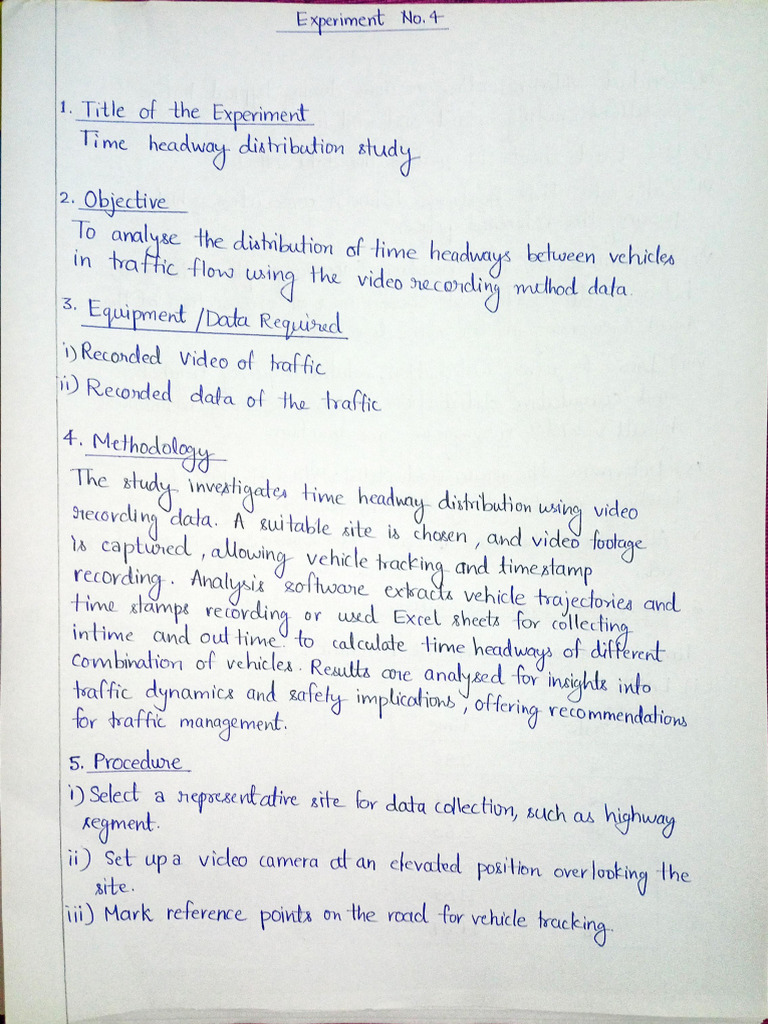 Experiment No. 4
1. Title of the Experiment
Time headway distribution study
2. Objective
To analyse the distribution of time headways between vehicles
in traffic flow using the video recording method data.
3. Equipment / Data Required
i) Recorded video of traffic
ii) Recorded data of the traffic
4. Methodology
The study investigates time headway distribution using video
recording data. A suitable site is chosen, and video footage
is captured, allowing vehicle tracking and timestamp
recording. Analysis software extracts vehicle trajectories and
time stamps recording or used Excel sheets for collecting
intime and out time. to calculate time headways of different
combination of vehicles. Results are analysed for insights into
traffic dynamics and safety implications, offering recommendations
for traffic management.
5. Procedure
i) Select a representative site for data collection, such as highway
segment.
ii) Set up a video camera at an elevated position overlooking the
site.
iii) Mark reference points on the road for vehicle tracking.